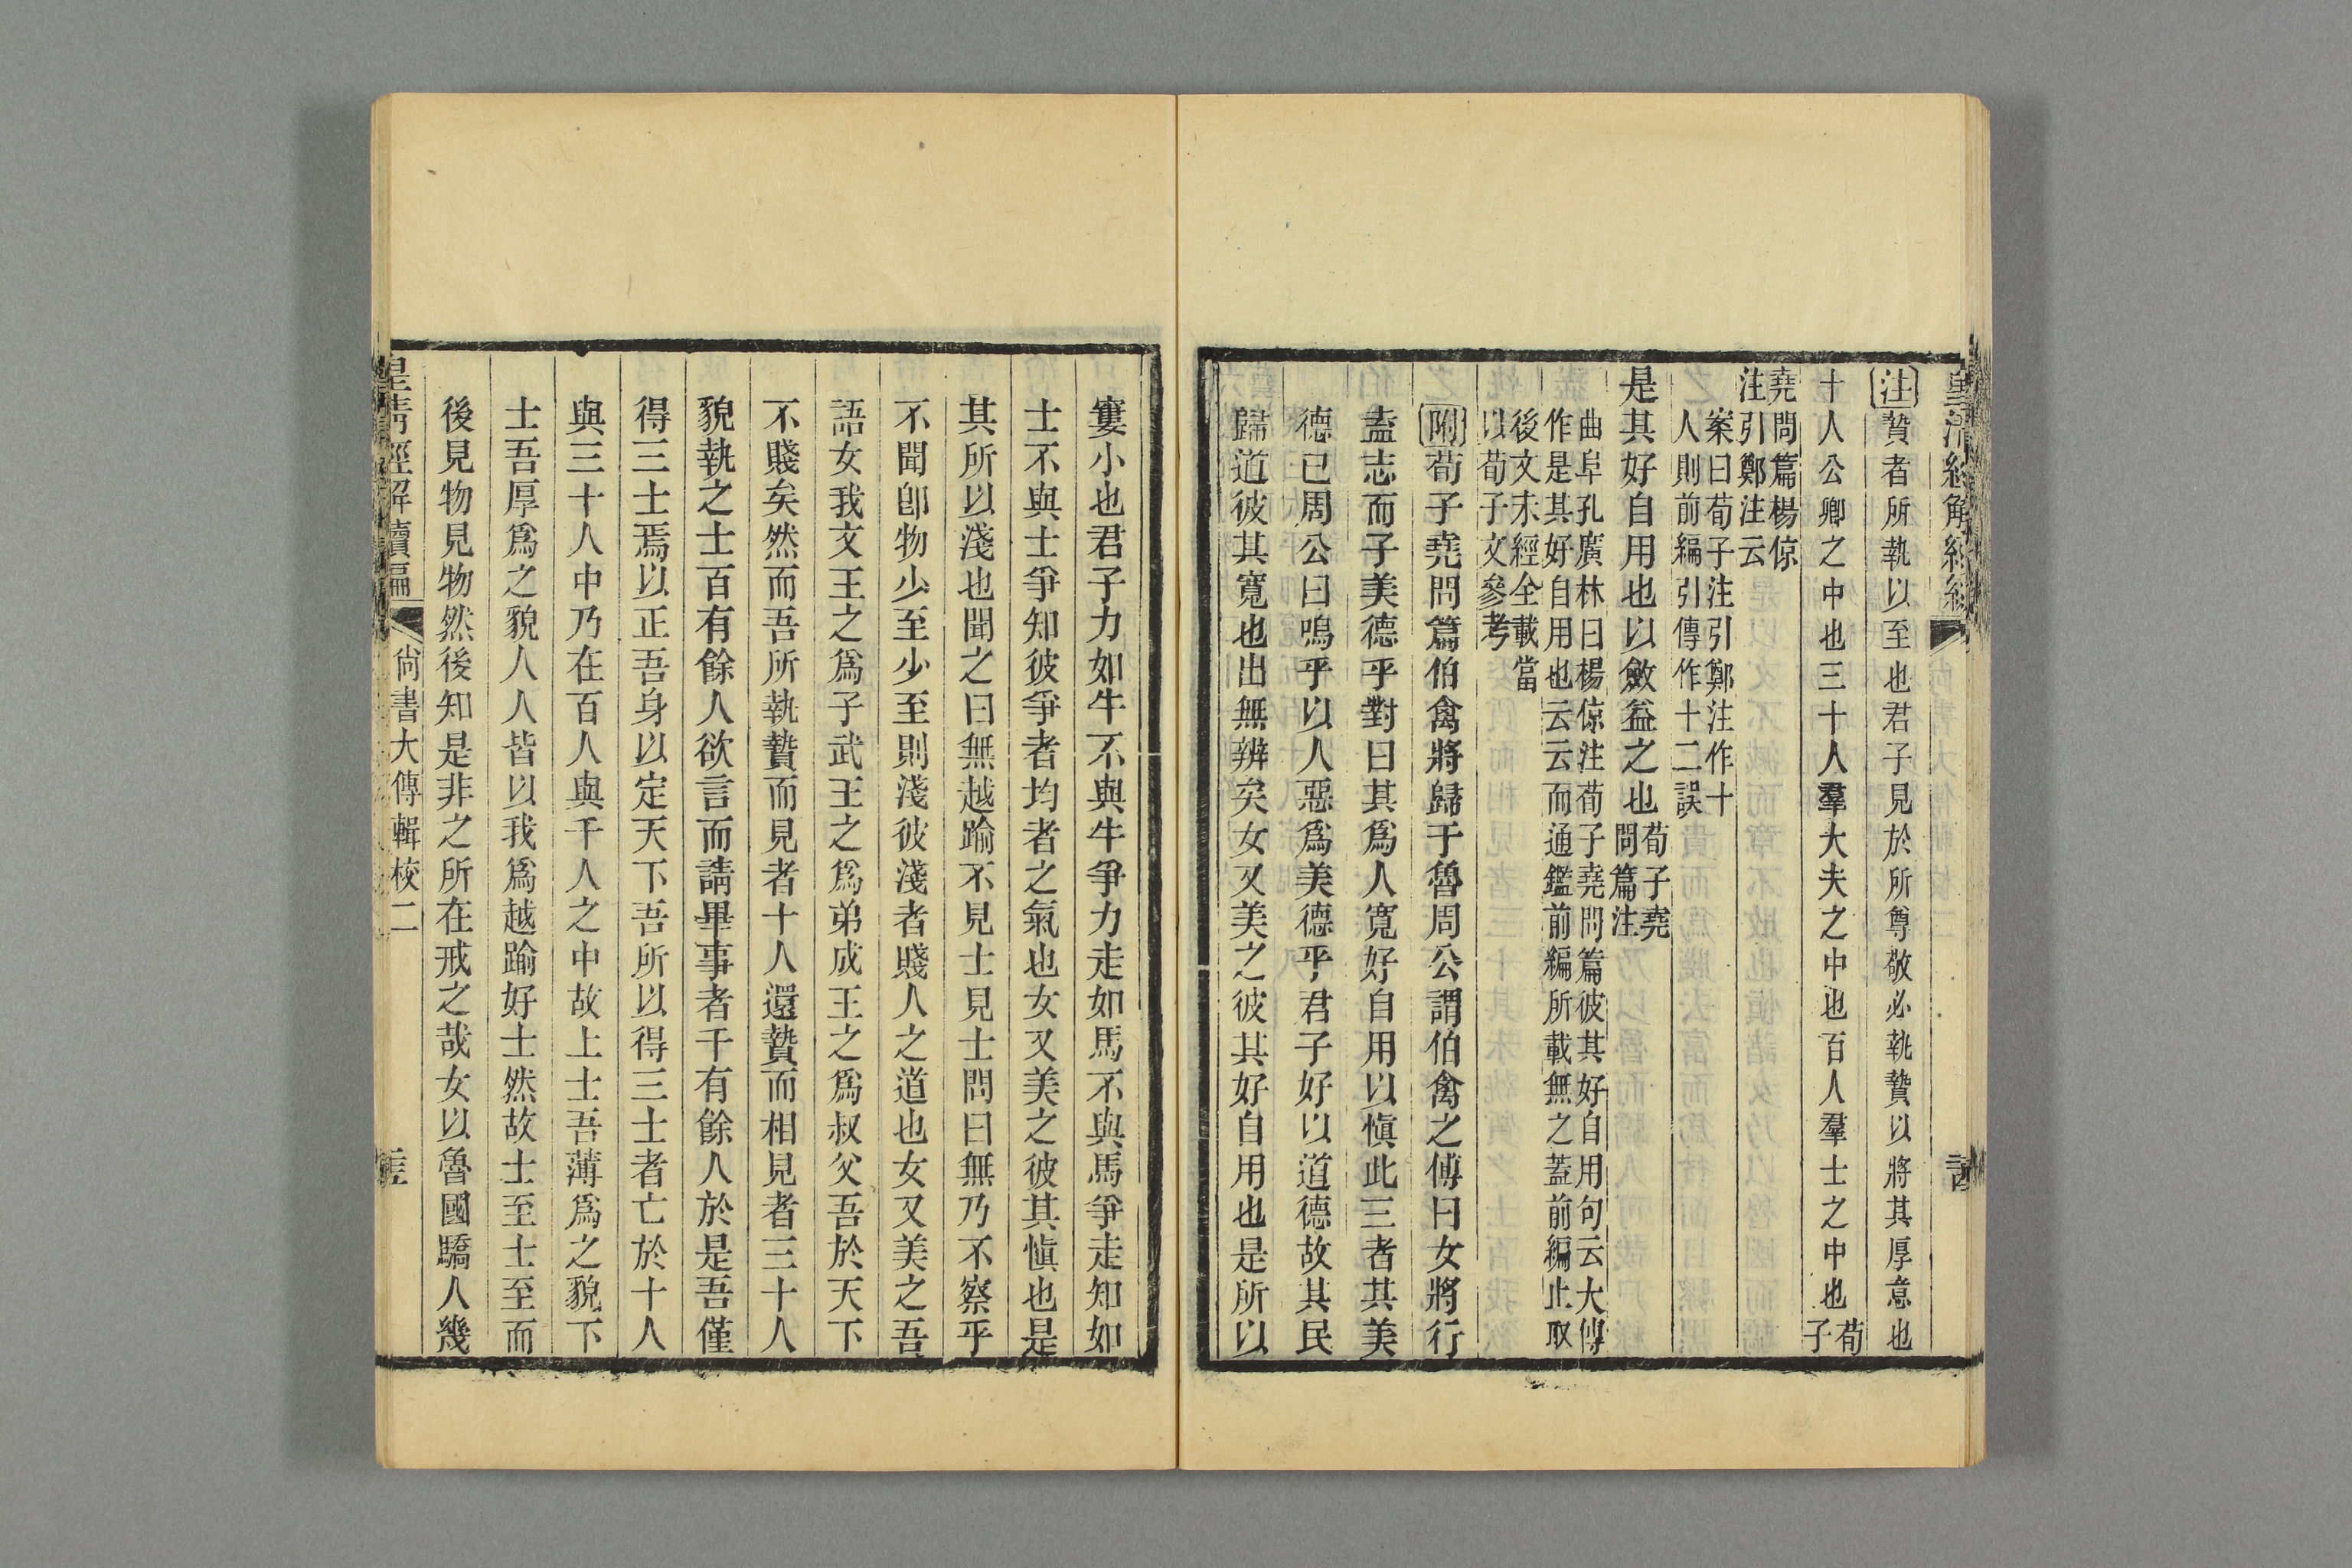 皇清經解續編
注贄者所執以至也君子見於所尊敬必執贄以將其厚意也
十人公卿之中也三十人羣大夫之中也百人羣士之中也荀子
堯問篇楊倞
注引鄭注云
案曰荀子注引鄭注作十
人則前編引傳作十二誤
是其好自用也以斂益之也荀子堯問篇注
曲阜孔廣林曰楊倞注荀子堯問篇彼其好自用句云大傳
作是其好自用也云云而通鑑前編所載無之蓋前編止取
後文未經全載當
以荀子文參考
附荀子堯問篇伯禽將歸于魯周公謂伯禽之傅曰女將行
盍志而子美德乎對曰其爲人寬好自用以愼此三者其美
德已周公曰嗚乎以人惡爲美德乎君子好以道德故其民
歸道彼其寬也出無辨矣女又美之彼其好自用也是所以
窶小也君子力如牛不與牛爭力走如馬不與馬爭走知如
士不與士爭知彼爭者均者之氣也女又美之彼其愼也是
其所以淺也聞之曰無越踰不見士見士問曰無乃不察乎
不聞卽物少至少至則淺彼淺者賤人之道也女又美之吾
語女我文王之爲子武王之爲弟成王之爲叔父吾於天下
不賤矣然而吾所執贄而見者十人還贄而相見者三十人
貌執之士百有餘人欲言而請畢事者千有餘人於是吾僅
得三士焉以正吾身以定天下吾所以得三士者亡於十人
與三十人中乃在百人與千人之中故上士吾薄爲之貌下
士吾厚爲之貌人人皆以我爲越踰好士然故士至士至而
後見物見物然後知是非之所在戒之哉女以魯國驕人幾
皇清經解續編
尚書大傳輯校二